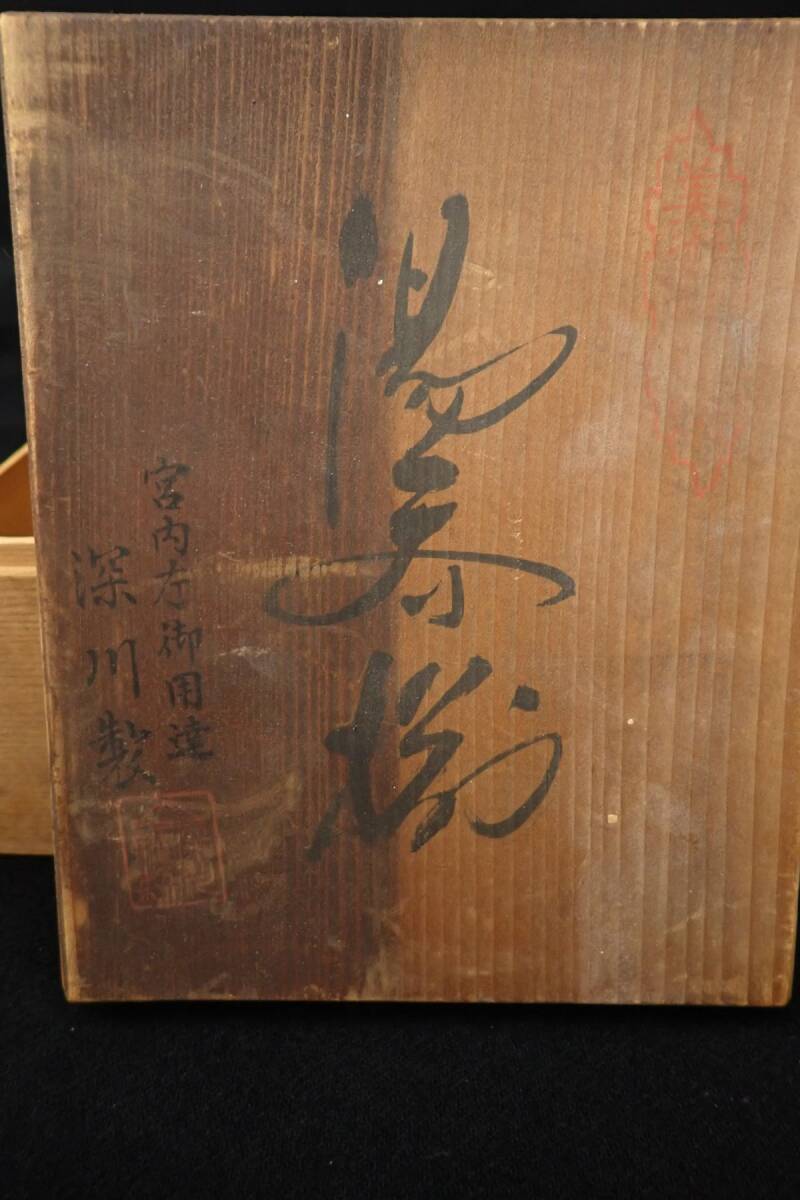 湯呑揃
宮内庁御用達
深川製